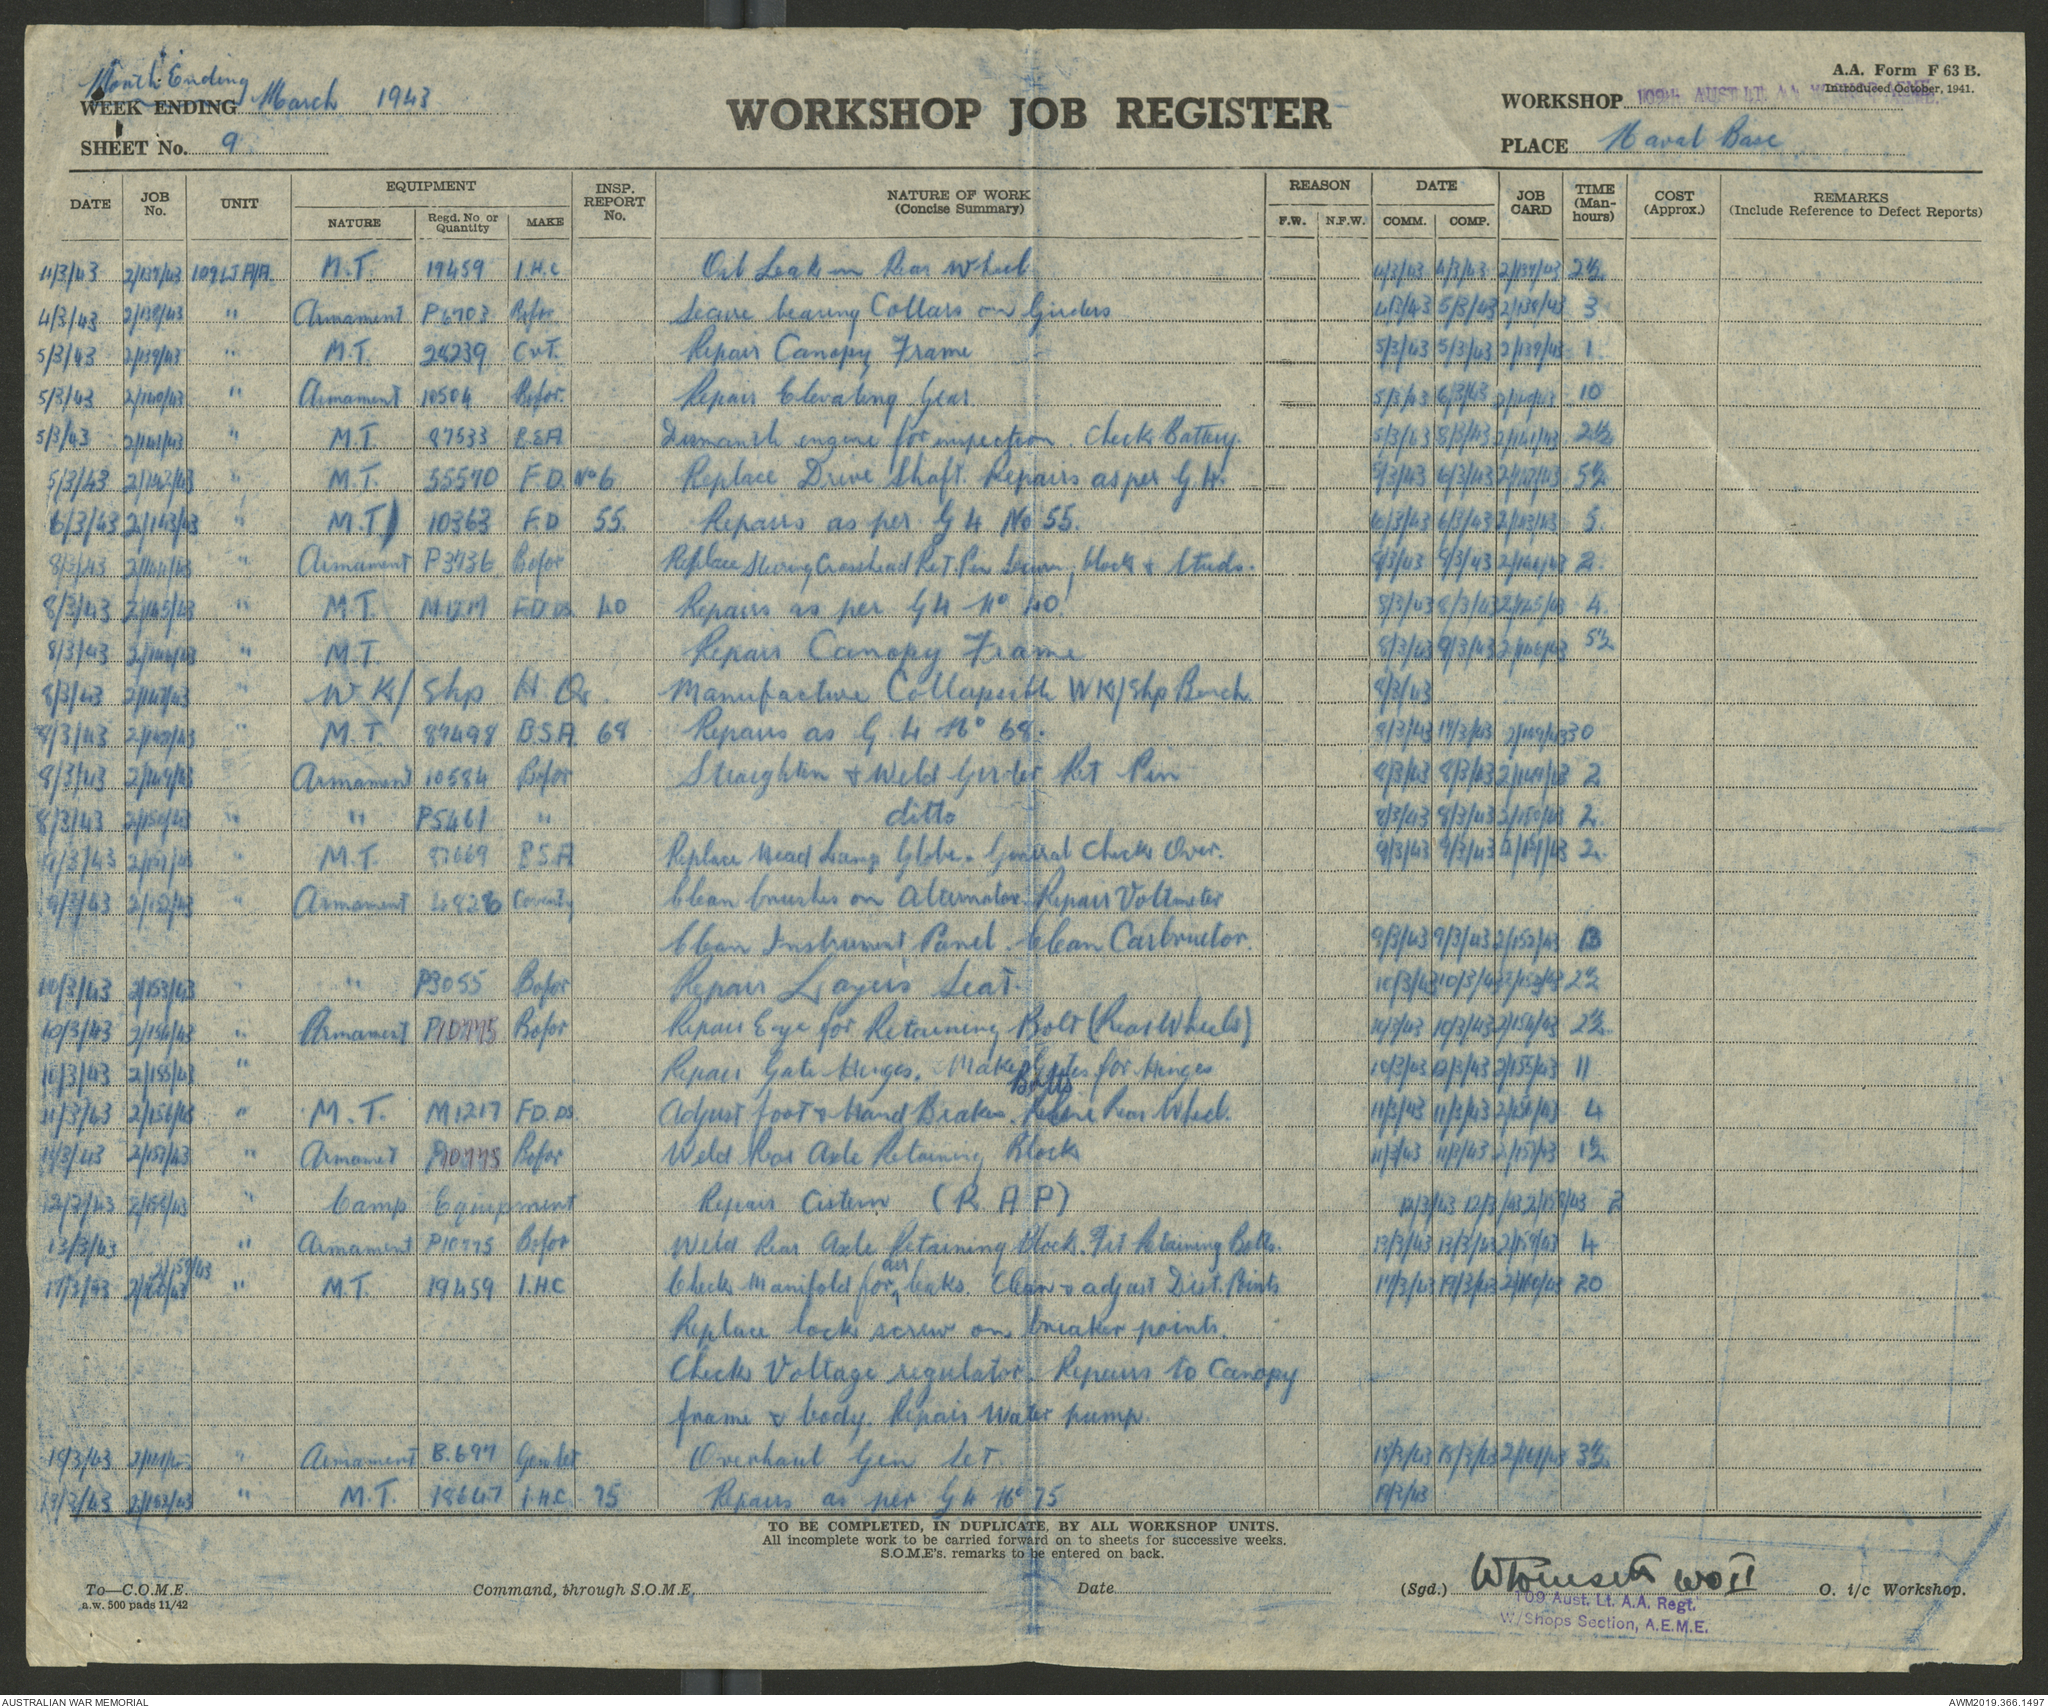 Month Ending
WEEK ENDING March 1943
SHEET No. 9
WORKSHOP JOB REGISTER
A.A. Form F 63 B.
Introduced October, 1941.
WORKSHOP 109th AUST. LT. AA
PLACE Naval Base
DATE JOB No. UNIT EQUIPMENT INSP. REPORT No. NATURE OF WORK (Concise Summary) REASON DATE JOB CARD TIME (Man-hours) COST (Approx.) REMARKS (Include Reference to Defect Reports)
NATURE Regd. No or Quantity MAKE F.W. N.F.W. COMM. COMP.
4/3/43 2/137/43 109 LT A/A. M.T. 19459 I.H.C Leak in Rear Wheel 4/3/43 4/3/43 2/137/43 2½
4/3/43 2/138/43 " Armament P6703 Bofor Secure bearing Collars on Girders 4/3/43 5/3/43 2/138/43 3
5/3/43 2/139/43 " M.T. 28239 Repair Canopy Frame 5/3/43 5/3/43 2/139/43 1
5/3/43 2/140/43 " Armament 10504 Bofor. Repair Elevating Gear 5/3/43 6/3/43 2/140/43 10
5/3/43 2/141/43 " M.T. 87533 B.S.A Dismantle engine for inspection. Check Battery. 5/3/43 8/3/43 2/141/43 2½
5/3/43 2/142/43 " M.T. 55570 F.D. No 6 Replace Drive Shaft. Repairs as per G.4. 5/3/43 6/3/43 2/142/43 5½
6/3/43 2/143/43 " M.T) 10363 F.D 55. Repairs as per G4 No 55. 6/3/43 6/3/43 2/143/43 5.
8/3/43 2/144/43 " Armament P3736 Bofor Replace Crosshead Ret. Pin block & Studs. 8/3/43 8/3/43 2/144/43 2.
8/3/43 2/145/43 " M.T. M1217 F.D.DS. 40 Repairs as per G4 No 40 8/3/43 8/3/43 2/145/43 4.
8/3/43 2/146/43 " M.T. Repair Canopy Frame 8/3/43 9/3/43 2/146/43 5½
8/3/43 2/147/43 " W.K/ Shp H.Q. Manufacture Collapsible WK/Shp Bench 8/3/43
8/3/43 2/148/43 " M.T. 87498 B.S.A. 68 Repairs as G.4 No 68. 8/3/43 17/3/43 30
8/3/43 2/149/43 " Armament 10584 Bofor Straighten & Weld Girder Ret Pin 8/3/43 8/3/43 2/149/43 2
8/3/43 2/150/43 " " P5461 " ditto 8/3/43 8/3/43 2/150/43 2.
9/3/43 2/151/43 " M.T. 87669 B.S.A Replace Head Lamp Globe. General Check Over. 9/3/43 9/3/43 2/151/43 2.
9/3/43 2/152/43 " Armament 4828 Coventry Clean brushes on Alternator. Repair Voltmeter
Clean Instrument Panel. Clean Carburetor. 9/3/43 9/3/43 2/152/43 13
10/3/43 2/153/43 " " P3055 Bofor Repair Layers Seat. 10/3/43 10/3/43 2/153/43 2½
10/3/43 2/154/43 " Armament P10775 Bofor Repair Eye for Retaining Bolt (Rear Wheels) 10/3/43 10/3/43 2/154/43 2½
10/3/43 2/155/43 " Repair Gate Hinges. Make for Hinges 10/3/43 12/3/43 2/155/43 11
Bolts
11/3/43 2/156/43 " M.T. M1217 F.D.DS. Adjust foot & Hand Brakes. Reline Rear Wheel. 11/3/43 11/3/43 2/156/43 4
11/3/43 2/157/43 " Armamet P10775 Bofor Weld Rear Axle Retaining Block 11/3/43 11/3/43 2/157/43 1½
12/3/43 2/158/43 " Camp Equipment Repair Cistern (R.A.P) 12/3/43 12/3/43 2/158/43 2
13/3/43 " Armament P10775 Bofor Weld Rear Axle Retaining Block. Fit Retaining Bolts. 13/3/43 13/3/43 2/159/43 4
2/159/43
17/3/43 2/160/43 " M.T. 19459 I.H.C Check Manifold for air leaks. Clean & adjust Dist. Points 17/3/43 19/3/43 2/160/43 20
Replace lock screw on breaker points.
Check Voltage regulator. Repairs to Canopy
frame & body. Repair Water pump.
18/3/43 " Armament B.697 Gen Set Overhaul Gen Set. 18/3/43 18/3/43 2/161/43 3½
19/3/43 2/162/43 " M.T. 18647 I.H.C. 75 Repairs as per G4 No 75 19/3/43
TO BE COMPLETED, IN DUPLICATE, BY ALL WORKSHOP UNITS.
All incomplete work to be carried forward on to sheets for successive weeks.
S.O.M.E's. remarks to be entered on back.
To—C.O.M.E. Command, through S.O.M.E. Date (Sgd.) WO II O. i/c Workshop.
a.w. 500 pads 11/42
109 Aust. Lt. A.A. Regt.
W/Shops Section, A.E.M.E.
AUSTRALIAN WAR MEMORIAL
AWM2019.366.1497